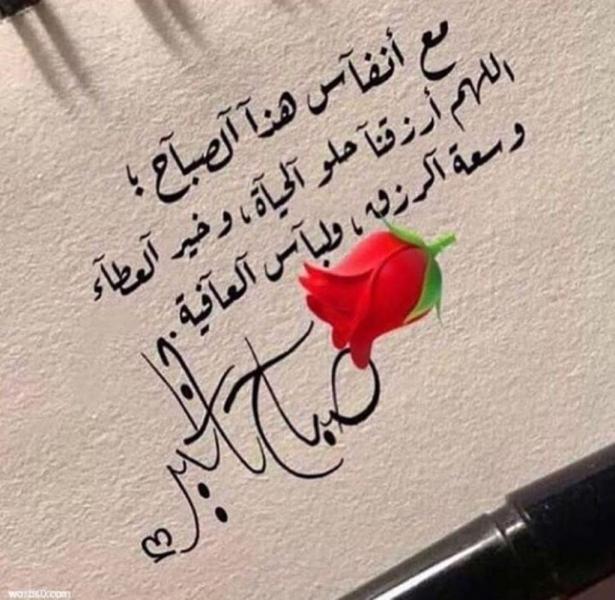 مع أنفآس هذآ آلصبآح ؛
اللهم أرزقنآ حلو آلحيآة ، وخير آلعطآء
وسعة آلرزق ، ولبآس آلعآفية .
صباح الخير